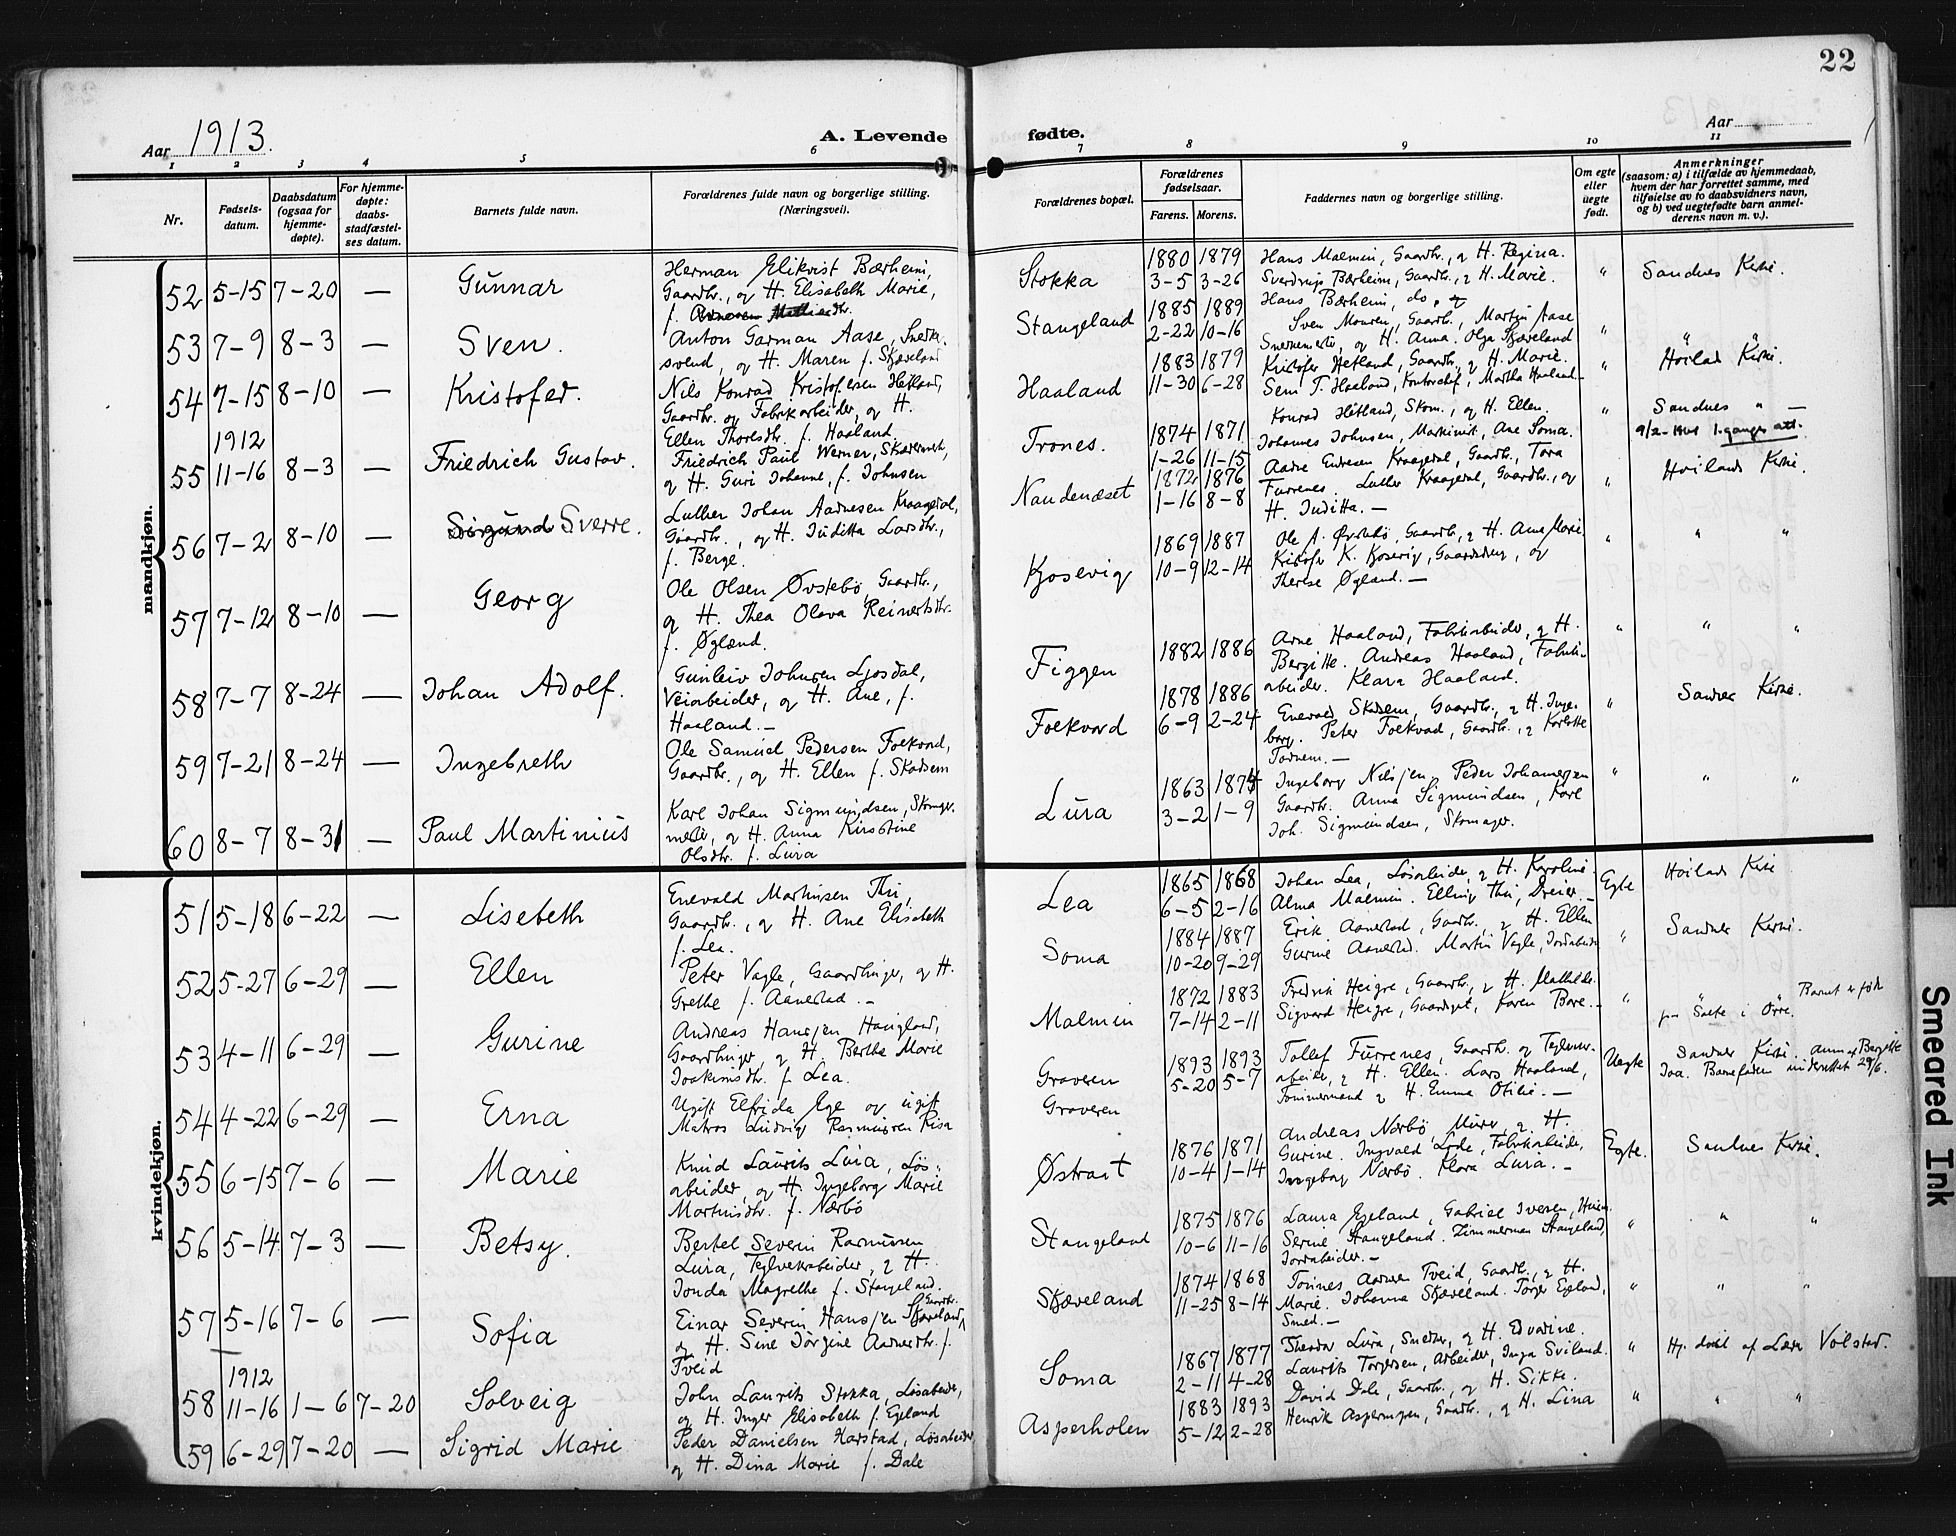 22
Aar 1913.
A. Levende
fødte.
Aar
1 2 3 4 5 6
7 8 9 10 11
Nr.
Fødsels-
datum.
Daabsdatum
(ogsaa for
hjemme-
døpte).
For hjemme-
døpte:
daabs-
stadfæstel-
ses datum.
Barnets fulde navn.
Forældrenes fulde navn og borgerlige stilling.
(Næringsvei).
Forældrenes bopæl.
Forældrenes
fødselsaar.
Farens. Morens.
Faddernes navn og borgerlige stilling.
Om egte
eller
uegte
født.
Anmerkninger
(saasom: a) i tilfælde av hjemmedaab,
hvem der har forrettet samme, med
tilføielse av to daabsvidners navn,
og b) ved uegtefødte barn anmel-
derens navn m. v.).
mandkjøn.
52 5-15 7-20 — Gunnar
Herman Elikvist Bærheim,
Gaardbr., og H. Elisabeth Marie,
Stokka
1880 1879
3-5 3-26
Hans Malmin, Gaardbr., og H. Regina.
Sverdrup Bærheim, Gaardbr., og H. Marie.
Hans Bærheim, do.
" Sandnes Kirke.
53 7-9 8-3 — Sven.
Anton Garman Aase, Snedk.
svend, og H. Maren f. Skjæveland
Stangeland
1885 1889
2-22 10-16
Sven Monsen, Gaardb., Martin Aase
Snedkermester, og H. Anna. Olga Skjæveland
" " "
54 7-15 8-10 — Kristofer.
Nils Konrad Kristofersen Hetland,
Gaardbr. og Fabrikarbeider, og H.
Ellen Thoresdtr. f. Haaland.
Haaland
1883 1879
11-30 6-28
Kristofer Hetland, Gaardbr., og H. Marie.
Sem T. Haaland, Kontorchef, Martha Haaland
Konrad Hetland, Skom., og H. Ellen.
" Höiland Kirke.
55 1912 11-16 8-3 — Friedrich Gustav.
Friedrich Paul Werner,
og H. Guri Johanne, f. Johnsen
Trones.
1874 1871
1-26 11-15
Johannes Johnsen, Maskinist, Ane Soma.
" Sandnes " —
56 7-2 8-10 — Sigund Sverre.
Luther Johan Aadnesen Kraagedal,
Gaardbr., og H. Juditta Larsdtr.,
f. Berge.
Naudenæset
1872 1876
1-16 8-8
Aadne Endresen Kraagedal, Gaardbr., Tora
Furrenes. Luther Kraagedal, Gaardbr., og
H. Juditta. —
" Höiland Kirke.
57 7-12 8-10 — Georg
Ole Olsen Øvstebö, Gaardbr.,
og H. Thea Olava Reinertsdtr.
f. Øglænd.
Kjosevig
1869 1887
10-9 12-14
Ole A. Øvstebö, Gaardbr., og H. Ane Marie.
Kristofer K. Kjosevig, Gaarddreng, og
Therese Øgland. —
" " "
58 7-7 8-24 — Johan Adolf.
Gunleiv Johnsen Ljosdal,
Veiarbeider, og H. Ane, f.
Haaland. —
Figgen
1882 1886
Arne Haaland, Fabrikarbeider, og H.
Bergitte. Andreas Haaland, Fabrik-
arbeider. Klara Haaland.
" " "
59 7-21 8-24 — Ingebreth
Ole Samuel Pedersen Folkvord,
Gaardbr., og H. Ellen f. Skadsem
Folkvord
1878 1886
6-9 2-24
Enevald Skadsem, Gaardbr., og H. Inge-
borg. Peter Folkvord, Gaardbr., og Karlotte
Tadnem. —
" Sandnes Kirke.
60 8-7 8-31 — Paul Martinius
Karl Johan Sigmundsen, Skomager-
mester, og H. Anna Kirstine
Olsdtr. f. Lura
Lura
1863 1874
3-2 1-9
Ingeborg Nilsjen, Peder Johannesen
Gaardbr. Anna Sigmundsen, Karl
Joh. Sigmundsen, Skomager.
" " "
kvindekjøn.
51 5-18 6-22 — Lisebeth
Enevald Martinsen Thu,
Gaardbr., og H. Ane Elisabeth
f. Lea.
Lea
1865 1868
6-5 2-16
Johan Lea, Løsarbeider, og H. Karoline.
Alma Malmin. Elling Thu, Dreier. —
Egte Höiland Kirke
52 5-27 6-29 — Ellen
Peter Vagle, Gaardbruger, og H.
Grethe f. Aanestad. —
Soma
1884 1887
10-20 9-29
Erik Aanestad, Gaardbr., og H. Ellen
Gurine Aanestad. Martin Vagle, Jordarbeider
" Sandnes Kirke.
53 4-11 6-29 — Gurine
Andreas Hansjen Haugland,
Gaardbruger, og H. Berthe Marie
Joakimsdtr. f. Lea.
Malmin
1872 1883
7-14 2-11
Fredrik Heigre, Gaardbr., og H. Mathilde.
Sigvard Heigre, Gaardgut, Karen Bore. —
" " Barnet er født
paa Salte i Orre.
54 4-22 6-29 — Erna
Ugift Elfrida Ege og ugift
Matros Ludvig Rasmussen Risa
Graveren
Graveren
1893 1893
5-20 5-7
Tollef Furrenes, Gaardbr. og Teglverks-
arbeider, og H. Ellen. Lars Haaland,
Tømmermand og H. Emma Otilie. —
Uegte Sandnes Kirke. anm. af Bergitte
Joa. Barnefaderen underrettet 29/6.
55 6-15 7-6 — Marie
Knud Laurits Lura, Løs-
arbeider, og H. Ingeborg Marie
Martinsdtr. f. Nærbö
Østraat
1876 1871
10-4 1-14
Andreas Nærbö, Murer, og H.
Gurine. Ingvald Lode, Fabrikarbeider,
Ingeborg Nærbö. Klara Lura. —
Egte. Sandnes Kirke.
56 5-14 7-3 — Betsy.
Bertel Severin Rasmussen
Lura, Teglverksarbeider, og H.
Tonda Magrethe f. Stangeland.
Stangeland
1875 1876
10-6 11-16
Laura Egeland, Gabriel Iversen,
Serine Stangeland. Zimmerman Stangeland,
Jordarbeider. —
" " "
57 5-16 7-6 — Sofia
Einar Severin Hansjen Skjæveland, Gaardbr.
og H. Sine Jörgine Aadnesdtr. f.
Tveid
Skjæveland
1874 1868
11-25 8-14
Tönnes Aadnesen Tveid, Gaardbr., og H.
Marie. Johanna Skjæveland. Torger Egeland,
Smed. —
" " "
58 1912 11-16 1-6 7-20 Solveig
John Laurits Stokka, Løsarbeider,
og H. Inger Elisabeth f. Egeland
Soma
1867 1877
2-11 4-28
Theodor Lura, Snedker, og H. Edvardine.
Laurits Torgersen, Arbeider, Inga Sviland.
" Hj. döbt af Lærer Volstad.
59 6-29 7-20 — Sigrid Marie
Peder Danielsen Harstad, Løsarbeider,
og H. Dina Marie f. Dale
Asperholen
1883 1893
5-12 2-28
David Dale, Gaardbr., og H. Sikke.
Henrik Aspervigen, Gaardbr., og H. Lina
" " "
Smeared Ink